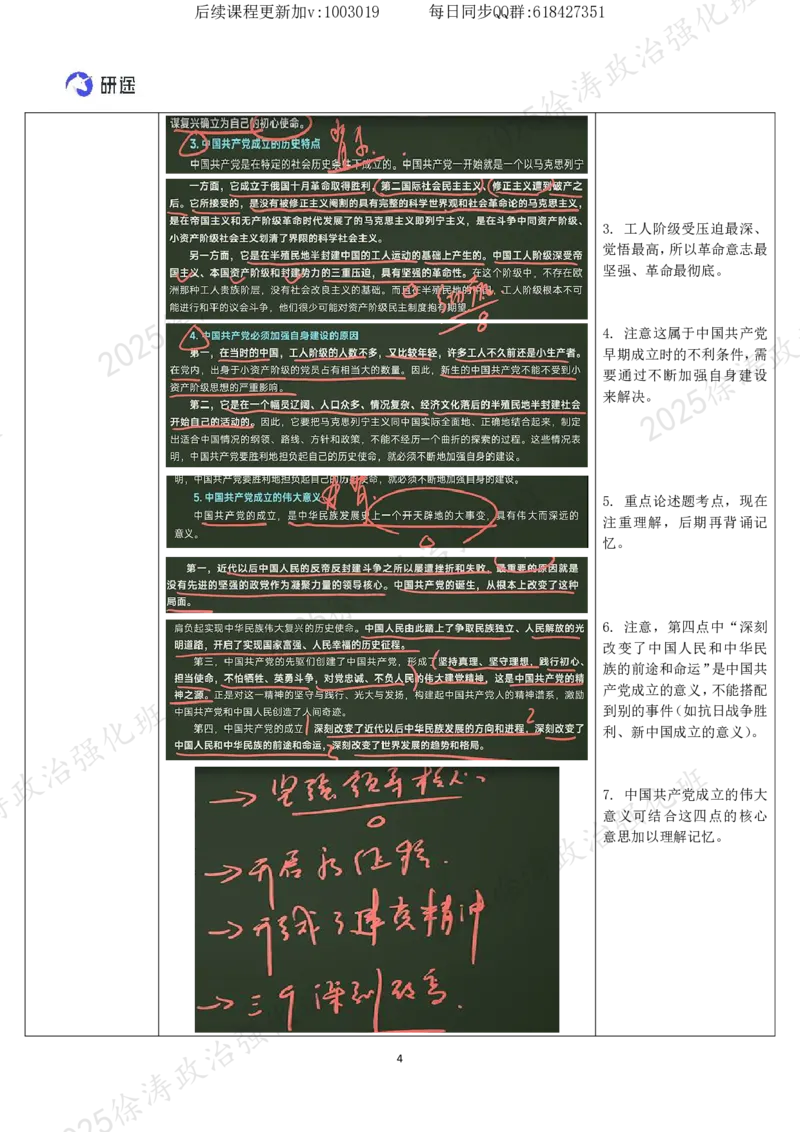 后续课程更新加v:1003019 每日同步QQ群:618427351
研途
谋复兴确立为自己的初心使命。
3. 中国共产党成立的历史特点
中国共产党是在特定的社会历史条件下成立的。中国共产党一开始就是一个以马克思列宁
一方面，它成立于俄国十月革命取得胜利，第二国际社会民主主义、修正主义遭到破产之
后。它所接受的，是没有被修正主义阉割的具有完整的科学世界观和社会革命论的马克思主义，
是在帝国主义和无产阶级革命时代发展了的马克思主义即列宁主义，是在斗争中同资产阶级、
小资产阶级社会主义划清了界限的科学社会主义。
另一方面，它是在半殖民地半封建中国的工人运动的基础上产生的。中国工人阶级深受帝
国主义、本国资产阶级和封建势力的三重压迫，具有坚强的革命性。在这个阶级中，不存在欧
洲那种工人贵族阶层，没有社会改良主义的基础。而且在半殖民地的中国，工人阶级根本不可
能进行和平的议会斗争，他们很少可能对资产阶级民主制度抱有期望。
4. 中国共产党必须加强自身建设的原因
第一，在当时的中国，工人阶级的人数不多，又比较年轻，许多工人不久前还是小生产者。
在党内，出身于小资产阶级的党员占有相当大的数量。因此，新生的中国共产党不能不受到小
资产阶级思想的严重影响。
第二，它是在一个幅员辽阔、人口众多、情况复杂、经济文化落后的半殖民地半封建社会
开始自己的活动的。因此，它要把马克思列宁主义同中国实际全面地、正确地结合起来，制定
出适合中国情况的纲领、路线、方针和政策，不能不经历一个曲折的探索的过程。这些情况表
明，中国共产党要胜利地担负起自己的历史使命，就必须不断地加强自身的建设。
明，中国共产党要胜利地担负起自己的历史使命，就必须不断地加强自身的建设。
5. 中国共产党成立的伟大意义
中国共产党的成立，是中华民族发展史上一个开天辟地的大事变，具有伟大而深远的
意义。
第一，近代以后中国人民的反帝反封建斗争之所以屡遭挫折和失败，最重要的原因就是
没有先进的坚强的政党作为凝聚力量的领导核心。中国共产党的诞生，从根本上改变了这种
局面。
肩负起实现中华民族伟大复兴的历史使命。中国人民由此踏上了争取民族独立、人民解放的光
明道路，开启了实现国家富强、人民幸福的历史征程。
第三，中国共产党的先驱们创建了中国共产党，形成了坚持真理、坚守理想，践行初心、
担当使命，不怕牺牲、英勇斗争，对党忠诚、不负人民的伟大建党精神，这是中国共产党的精
神之源。正是对这一精神的坚守与践行、光大与发扬，构建起中国共产党人的精神谱系，激励
中国共产党和中国人民创造了人间奇迹。
第四，中国共产党的成立，深刻改变了近代以后中华民族发展的方向和进程，深刻改变了
中国人民和中华民族的前途和命运，深刻改变了世界发展的趋势和格局。
→坚强领导核心
→开启新征程.
→形成了建党精神
→三个深刻改变.
3. 工人阶级受压迫最深、
觉悟最高，所以革命意志最
坚强、革命最彻底。
4. 注意这属于中国共产党
早期成立时的不利条件，需
要通过不断加强自身建设
来解决。
5. 重点论述题考点，现在
注重理解，后期再背诵记
忆。
6. 注意，第四点中“深刻
改变了中国人民和中华民
族的前途和命运”是中国共
产党成立的意义，不能搭配
到别的事件（如抗日战争胜
利、新中国成立的意义）。
7. 中国共产党成立的伟大
意义可结合这四点的核心
意思加以理解记忆。
4
2025徐涛政治强化班